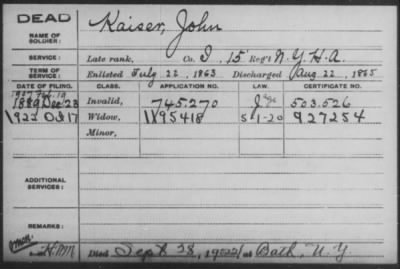 DEAD
Kaiser, John
NAME OF SOLDIER:
SERVICE: Late rank, Co. I, 15 Reg't N.Y.H.A.
TERM OF SERVICE: Enlisted July 22, 1863 Discharged Aug. 22, 1865
DATE OF FILING. CLASS. APPLICATION NO. LAW. CERTIFICATE NO.
1889 Dec 23 Invalid, 745.270 503.526
1922 Oct 17 Widow, 1195418 5-1-20 927254
Minor,
ADDITIONAL SERVICES:
REMARKS:
Died Sept 28, 1922 at Bath, N.Y